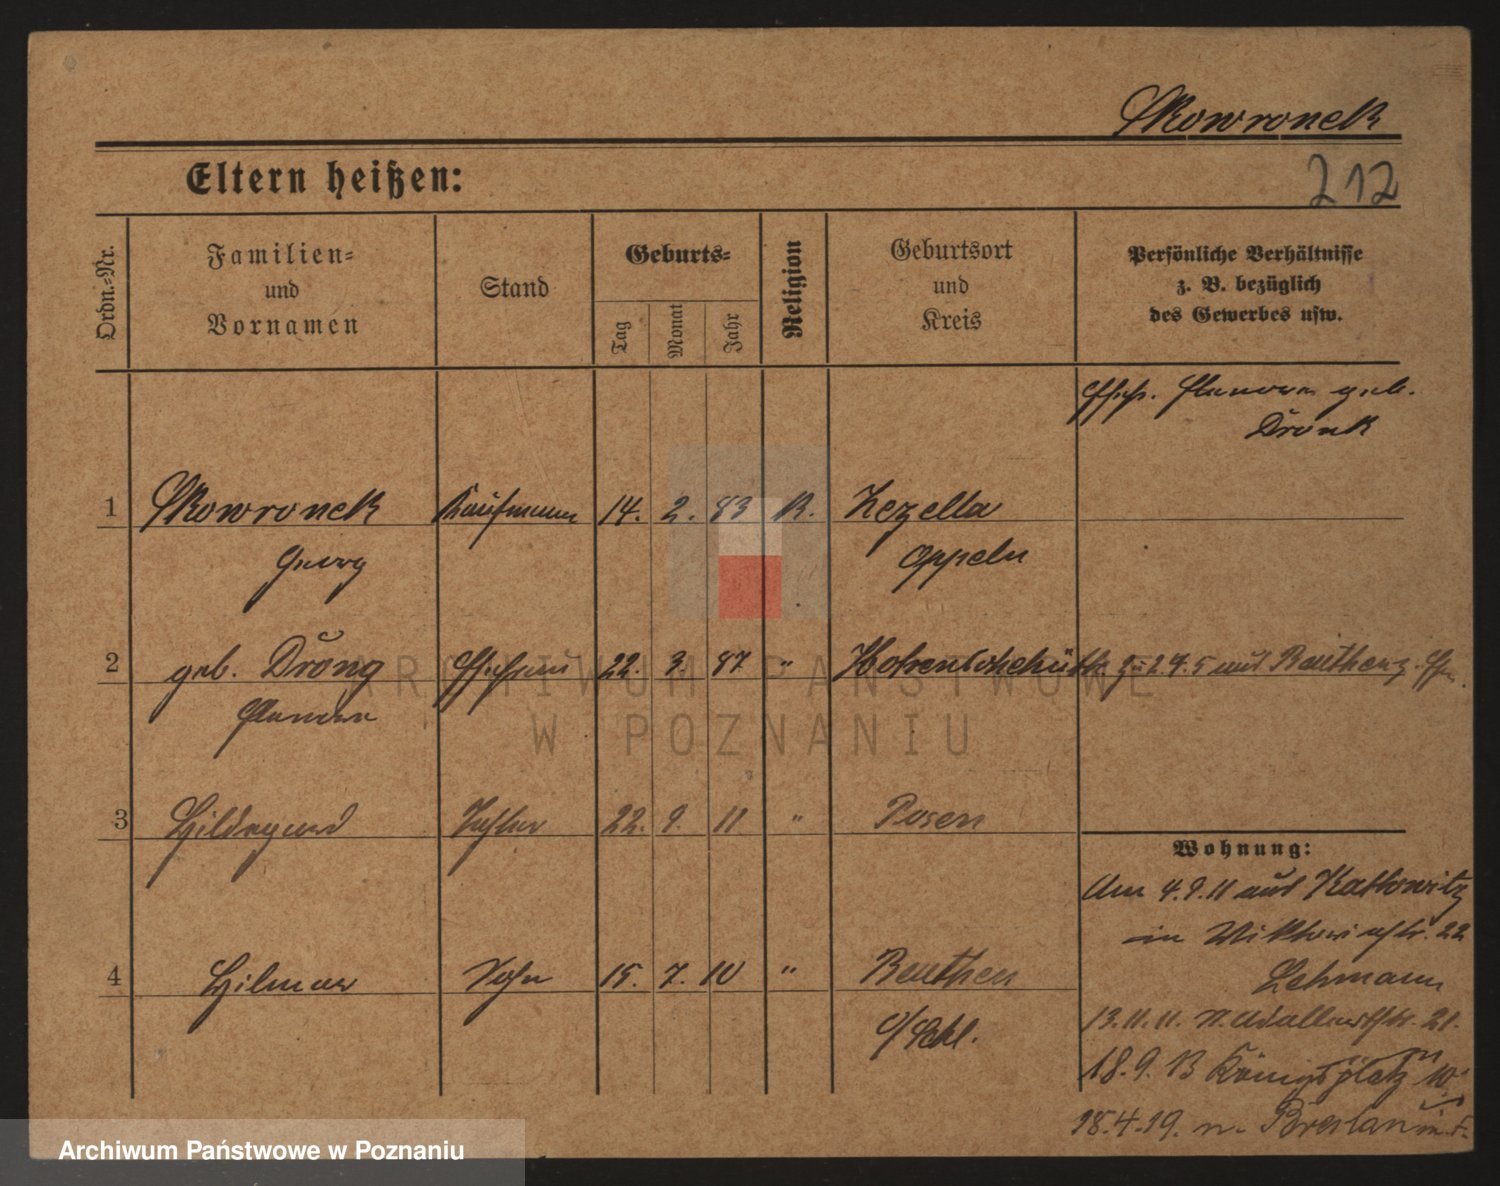 Skowronek
Eltern heißen:
212
Ordn.-Nr.
Familien-
und
Vornamen
Stand
Geburts-
Tag
Monat
Jahr
Religion
Geburtsort
und
Kreis
Persönliche Verhältnisse
z. B. bezüglich
des Gewerbes usw.
Ehefr. Eleonore geb.
Dronk
1 Skowronek Kaufmann 14. 2. 83 K.
Georg Oppeln
2 geb. Drong Ehefrau 22. 3. 87 "
Eleonore
3 Hildegard Tochter 22. 9. 11 " Posen
4 Hilmar Sohn 15. 7. 10 " Beuthen
O/Schl.
Wohnung:
Am 4.9.11 aus Kattowitz
in Viktoriastr. 22
Lehmann
13.11.11. n. 21.
18.9.13 Königsplatz 10
18.4.19. n. Breslau
ARCHIWUM PAŃSTWOWE
W POZNANIU
Archiwum Państwowe w Poznaniu